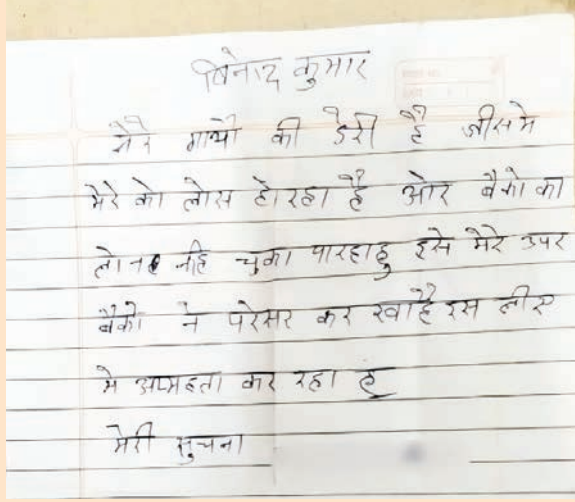 विनोद कुमार
मेरे गायो की डेरी है जीसमे
मेरे को लोस हो रहा है और बैको का
लोन नहि चुका पारहाहु इसे मेरे उपर
बैको ने परेसर कर रखा है इस लीए
मे आत्महत्या कर रहा हु
मेरी सुचना